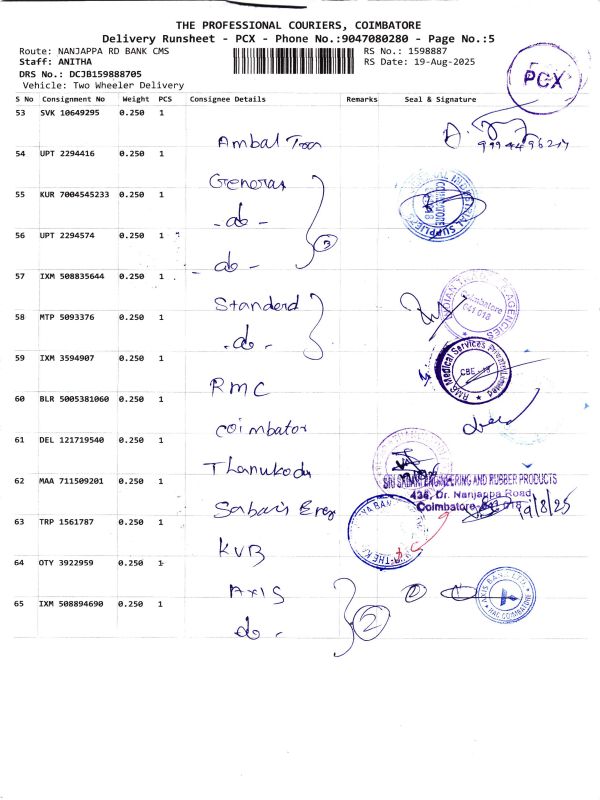 THE PROFESSIONAL COURIERS, COIMBATORE
Delivery Runsheet - PCX - Phone No.:9047080280 - Page No.:5
Route: NANJAPPA RD BANK CMS
RS No.: 1598887
Staff: ANITHA
RS Date: 19-Aug-2025
DRS No.: DCJB159888705
Vehicle: Two Wheeler Delivery
PCX
S No Consignment No Weight PCS Consignee Details Remarks Seal & Signature
53 SVK 10649295 0.250 1
Ambal
54 UPT 2294416 0.250 1
General
55 KUR 7004545233 0.250 1
-do-
56 UPT 2294574 0.250 1
3
do-
57 IXM 508835644 0.250 1
Standard
Coimbatore
641 018
AGENCIES
58 MTP 5093376 0.250 1
-do-
59 IXM 3594907 0.250 1
RMC
RMG Medical Services Private Limited
CBE - 18
60 BLR 5005381060 0.250 1
Coimbator
61 DEL 121719540 0.250 1
Thanukodu
62 MAA 711509201 0.250 1
SRI SABARI ENGINEERING AND RUBBER PRODUCTS
426, Dr. Nanjappa Road,
Coimbatore - 641 018
19/8/25
Sabari Eng
63 TRP 1561787 0.250 1
KVB
64 OTY 3922959 0.250 1
AXIS
AXIS BANK LTD.
2
65 IXM 508894690 0.250 1
do-